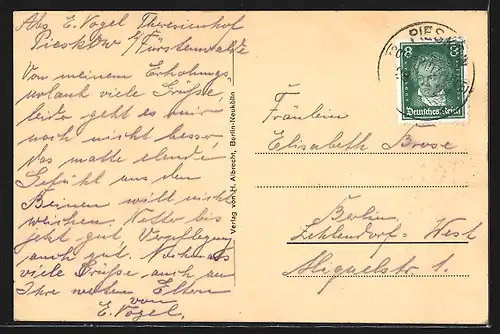 Abs. E. Vogel Theresienhof
Pieskow b/ Fürstenwalde
Von meinem Erholungs,
urlaub viele Grüße,
leider geht es mir
noch nicht besser,
das matte elende
Gefühl aus den
Beinen will nicht
weichen. Wetter bis
jetzt gut, Verpflegung
auch gut. Nochmals
viele Grüße auch an
Ihre werten Eltern
von
E. Vogel.
Verlag von H. Albrecht, Berlin-Neukölln
PIESK
8 8
Deutsches Reich
Fräulein
Elisabeth Brose
Berlin
Zehlendorf-West
Miquelstr. 1.